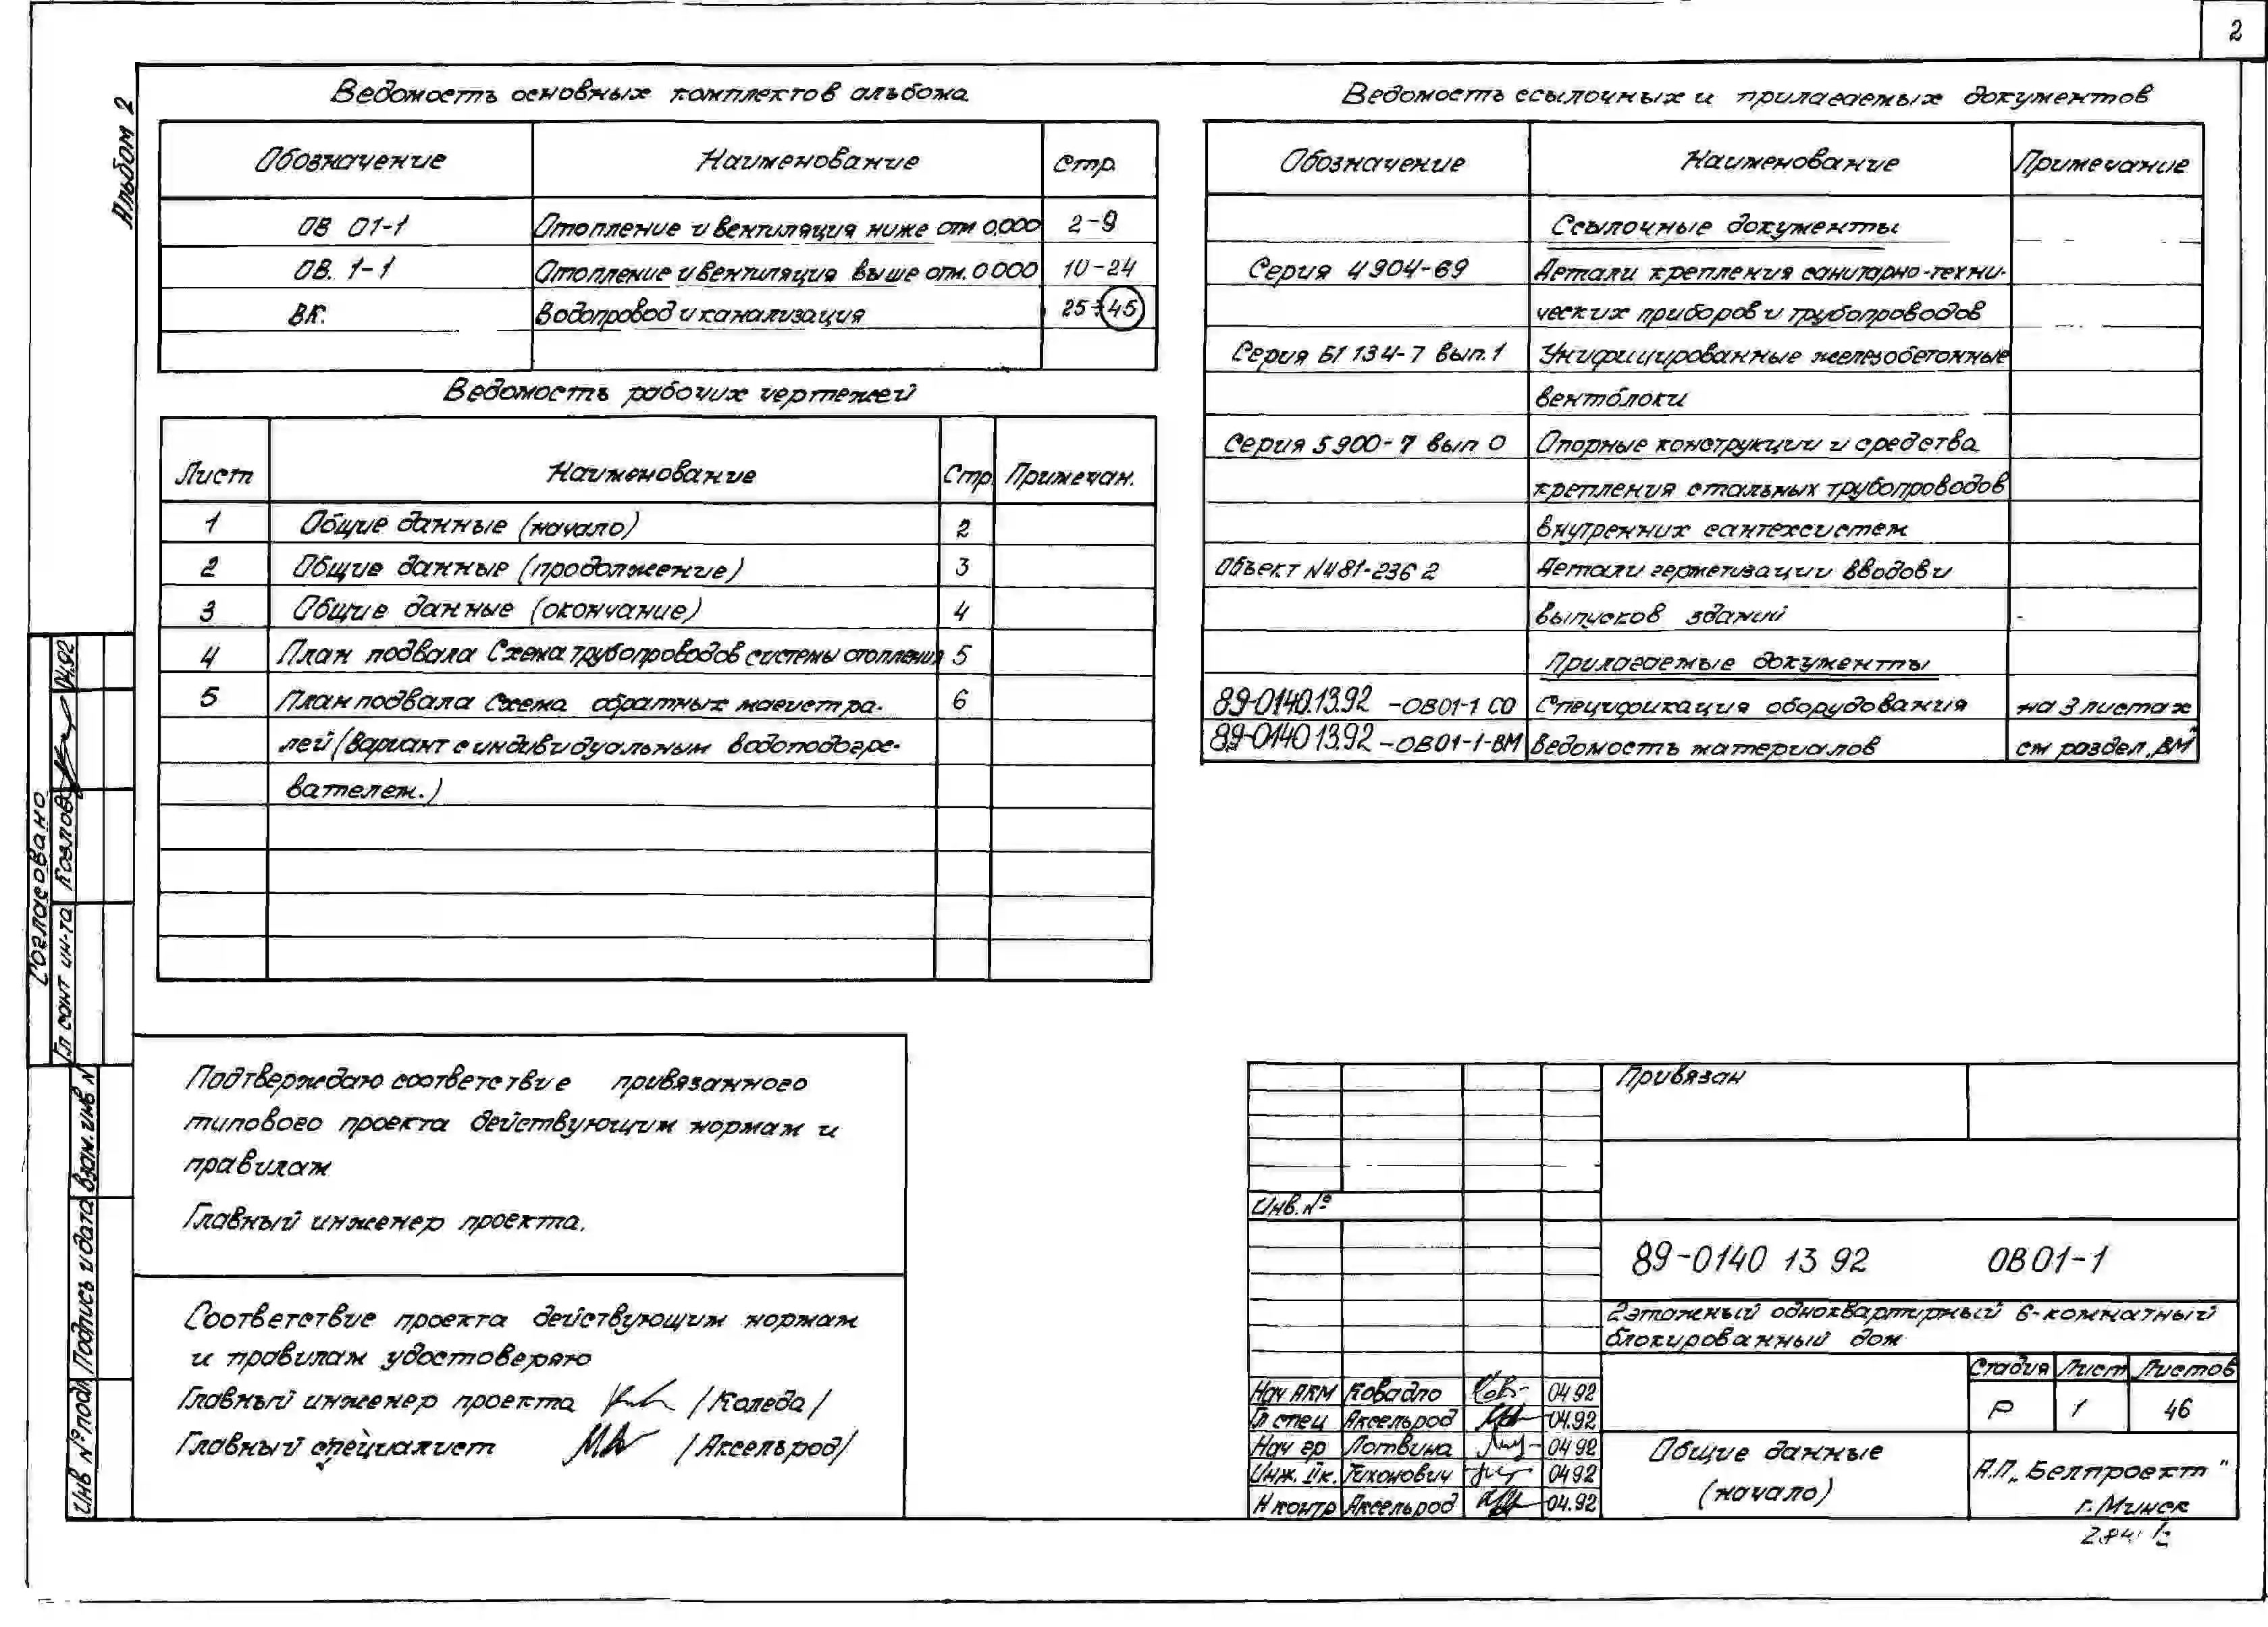 2
Альбом 2
Ведомость основных комплектов альбома
Обозначение Наименование Стр.
ОВ 01-1 Отопление и вентиляция ниже отм 0.000 2-9
ОВ. 1-1 Отопление и вентиляция выше отм. 0 000 10-24
ВК. Водопровод и канализация 25÷45
Ведомость рабочих чертежей
Лист Наименование Стр. Примечан.
1 Общие данные (начало) 2
2 Общие данные (продолжение) 3
3 Общие данные (окончание) 4
4 План подвала Схема трубопроводов системы отопления 5
5 План подвала Схема обратных магистра- 6
лей (вариант с индивидуальным водоподогре-
вателем.)
Ведомость ссылочных и прилагаемых документов
Обозначение Наименование Примечание
Ссылочные документы
Серия 4 904-69 Детали крепления санитарно-техни-
ческих приборов и трубопроводов
Серия Б1 134-7 вып. 1 Унифицированные железобетонные
вентблоки
Серия 5 900-7 вып 0 Опорные конструкции и средства
крепления стальных трубопроводов
внутренних сантехсистем
Объект N481-236 2 Детали герметизации вводов и
выпусков зданий
Прилагаемые документы
89-0140.13.92 -ОВ01-1 СО Спецификация оборудования на 3 листах
89-0140 13.92 -ОВ01-1-ВМ Ведомость материалов см раздел „ВМ"
Согласовано
Гл сант ин-та Козлов 04.92
Взам. инв N
Подпись и дата
Инв № подл
Подтверждаю соответствие привязанного
типового проекта действующим нормам и
правилам
Главный инженер проекта.
Соответствие проекта действующим нормам
и правилам удостоверяю
Главный инженер проекта /Коледа/
Главный специалист /Аксельрод/
Привязан
Инв. №
89-0140 13 92 ОВ 01-1
2этажный одноквартирный 6-комнатный
блокированный дом
Стадия Лист Листов
Р 1 46
Нач АКМ Ковадло 04 92
Гл спец Аксельрод 04.92
Нач гр Лотвина 04 92
Инж. IIк. Тихонович 04 92
Н контр Аксельрод 04.92
Общие данные
(начало)
А.П „Белпроект"
г. Минск